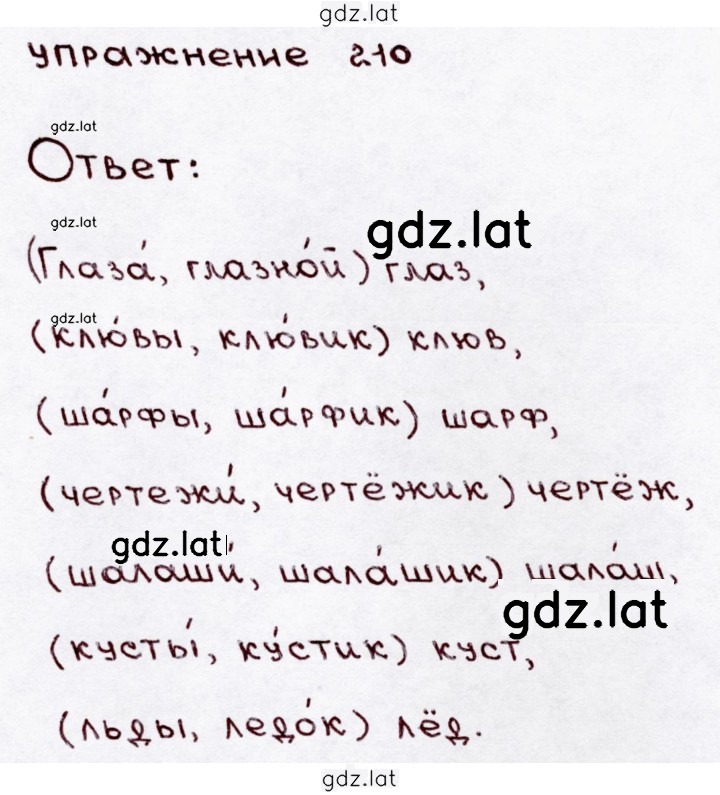 gdz.lat
упражнение 210
gdz.lat
Ответ:
gdz.lat
gdz.lat
(Глаза́, глазно́й) глаз,
gdz.lat
(клю́вы, клю́вик) клюв,
(ша́рфы, ша́рфик) шарф,
(чертежи́, чертёжик) чертёж,
gdz.lat
(шалаши́, шала́шик) шала́ш,
gdz.lat
(кусты́, ку́стик) куст,
(льды, ледо́к) лёд.
gdz.lat